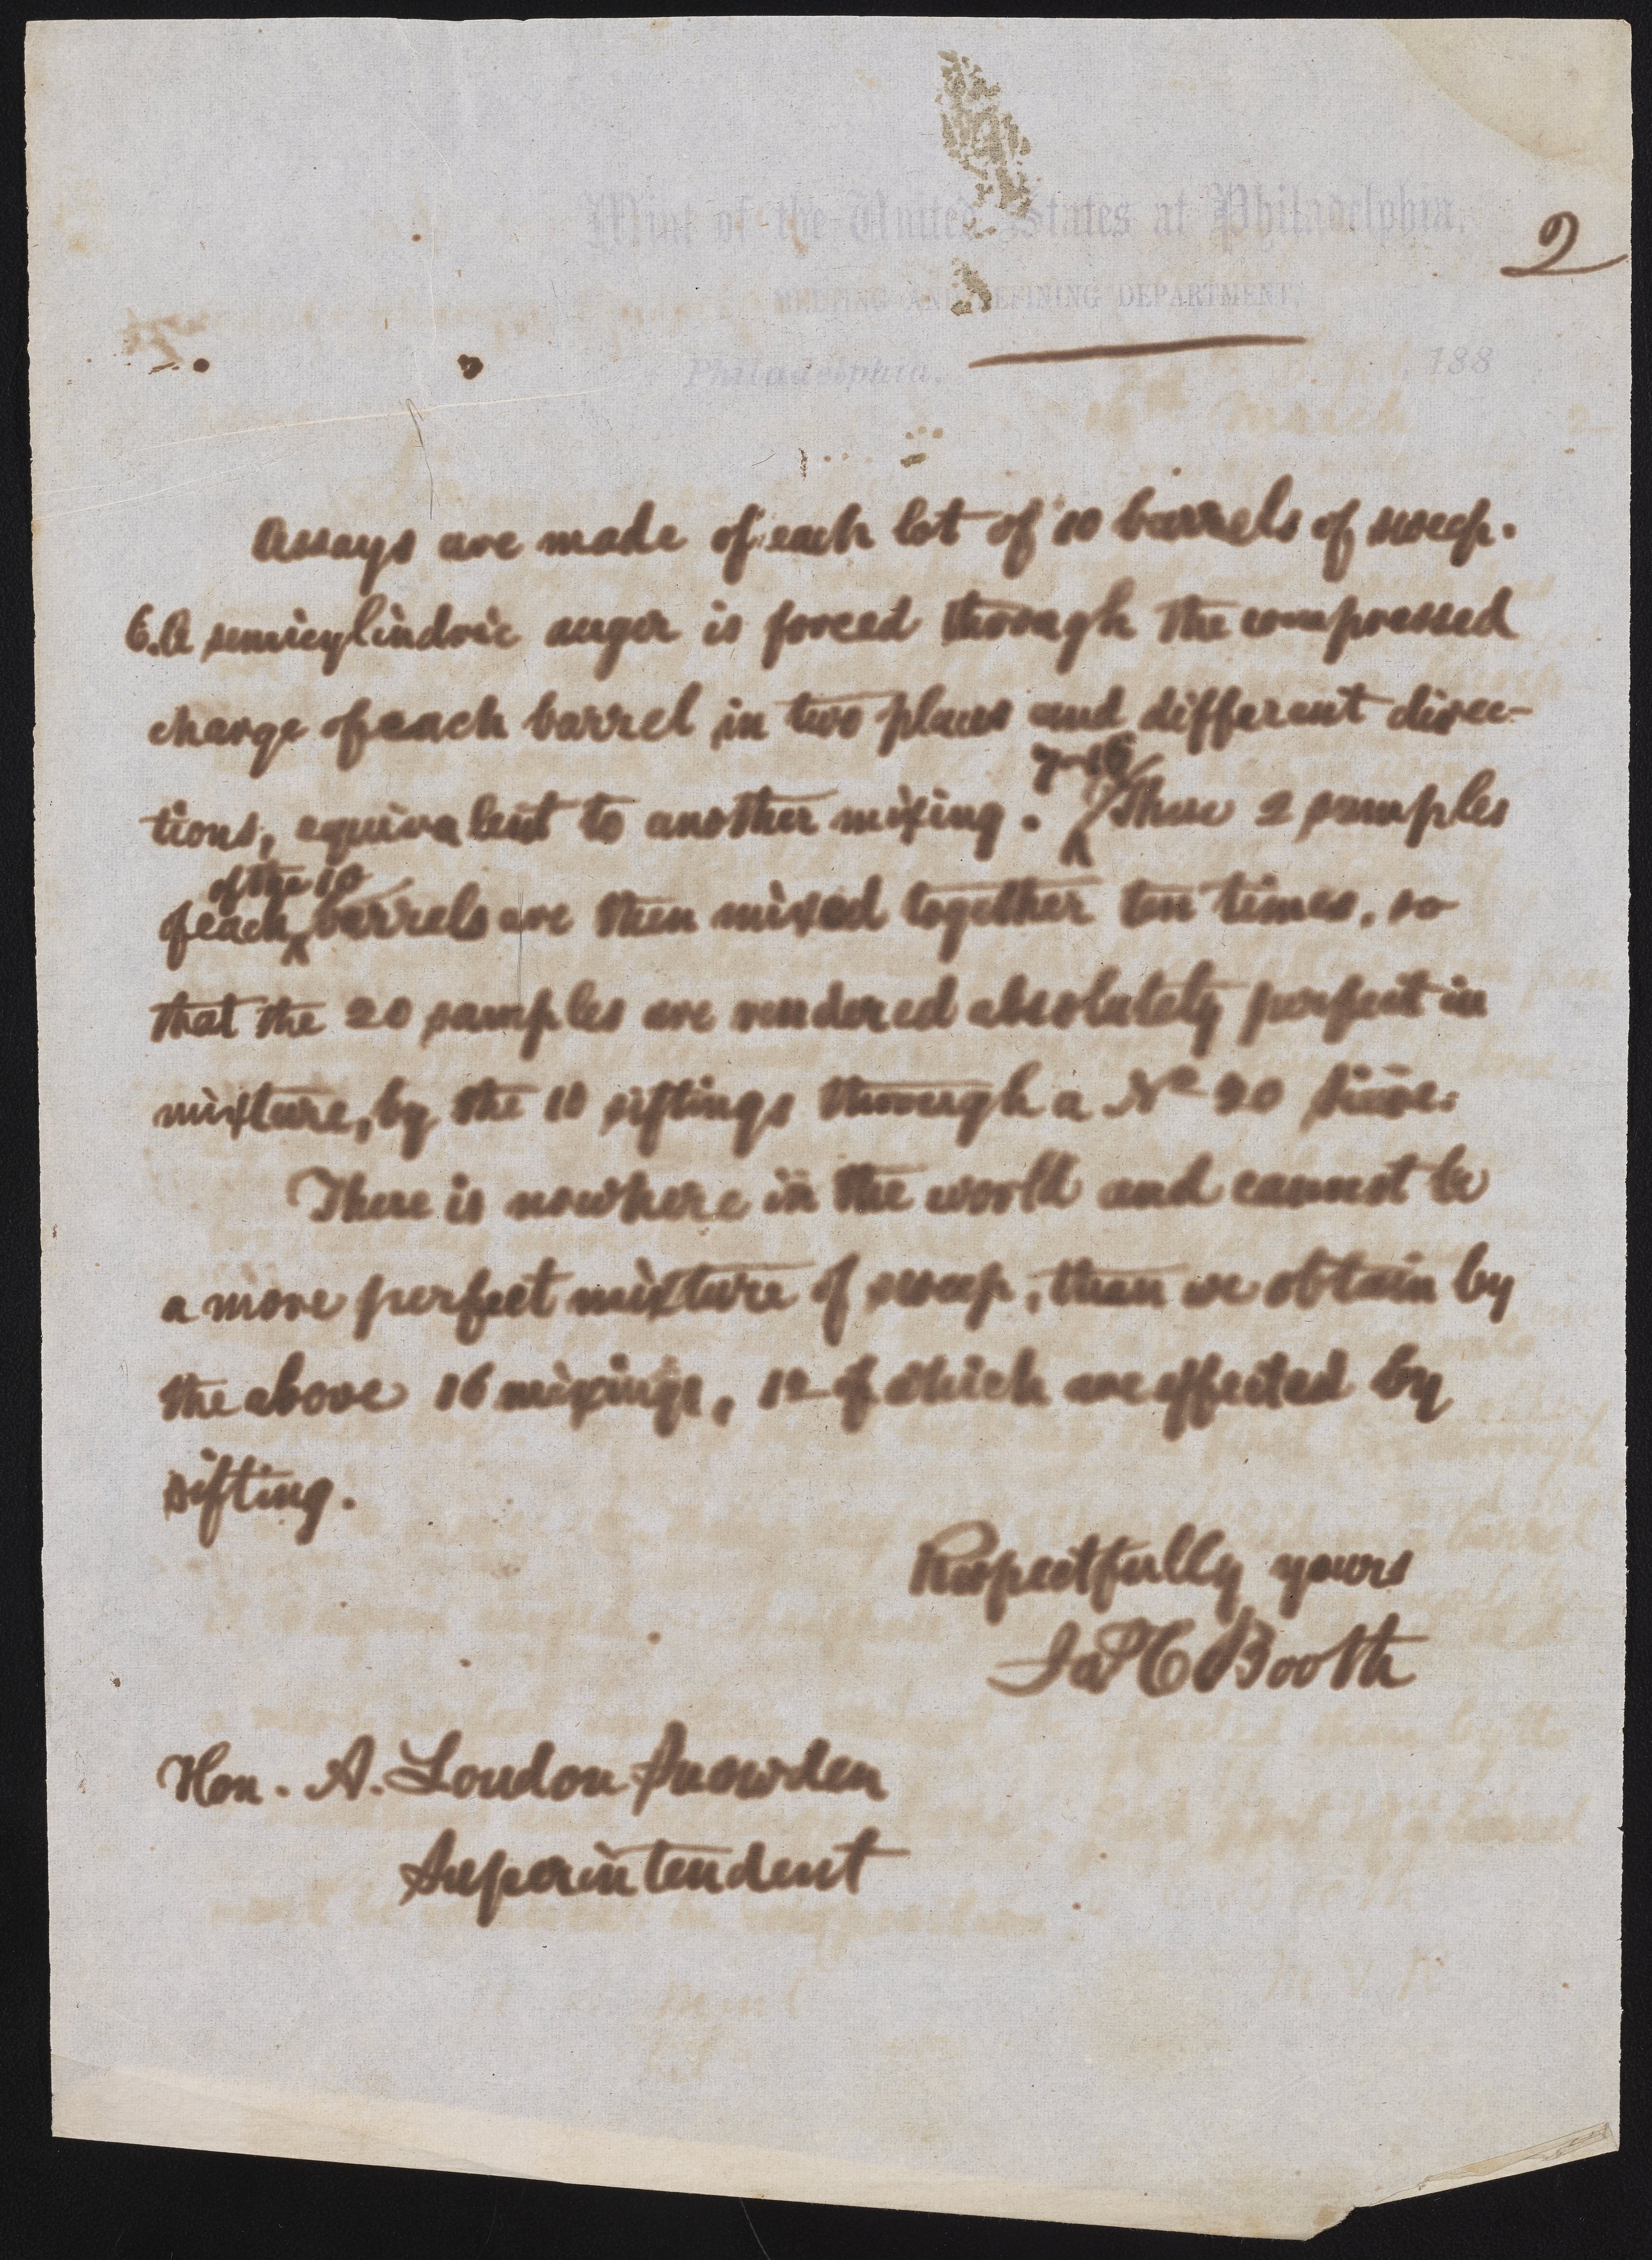 Mint of the United States at Philadelphia,
2
MELTING AND REFINING DEPARTMENT,
Philadelphia, 188
16th March 2
Assays are made of each lot of 10 barrels of sweep.
6. A semicylindric auger is forced through the compressed
charge of each barrel in two places and different direc-
tions, equivalent to another mixing. 7-16 These 2 samples
of each of the 10 barrels are then mixed together ten times, so
that the 20 samples are rendered absolutely perfect in
mixture, by the 10 siftings through a No 20 sieve.
There is nowhere in the world and cannot be
a more perfect mixture of sweep, than we obtain by
the above 16 mixings, 12 of which are effected by
sifting.
Respectfully yours
Jas C Booth
Hon. A. Loudon Snowden
Superintendent